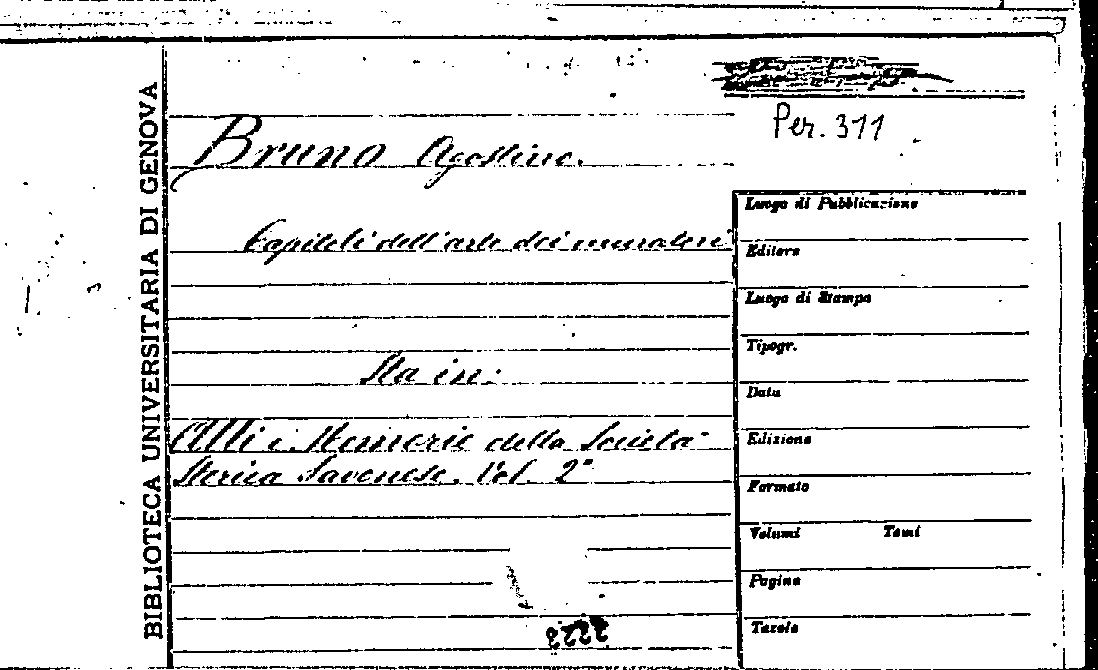 BIBLIOTECA UNIVERSITARIA DI GENOVA
Per. 311
Bruno Agostino.
Capitoli dell'arte dei muratori
Sta in:
Atti e Memorie della Società
Storica Savonese. Vol. 2°
Luogo di Pubblicazione
Editore
Luogo di Stampa
Tipogr.
Data
Edizione
Formato
Volumi Tomi
Pagine
Tavole